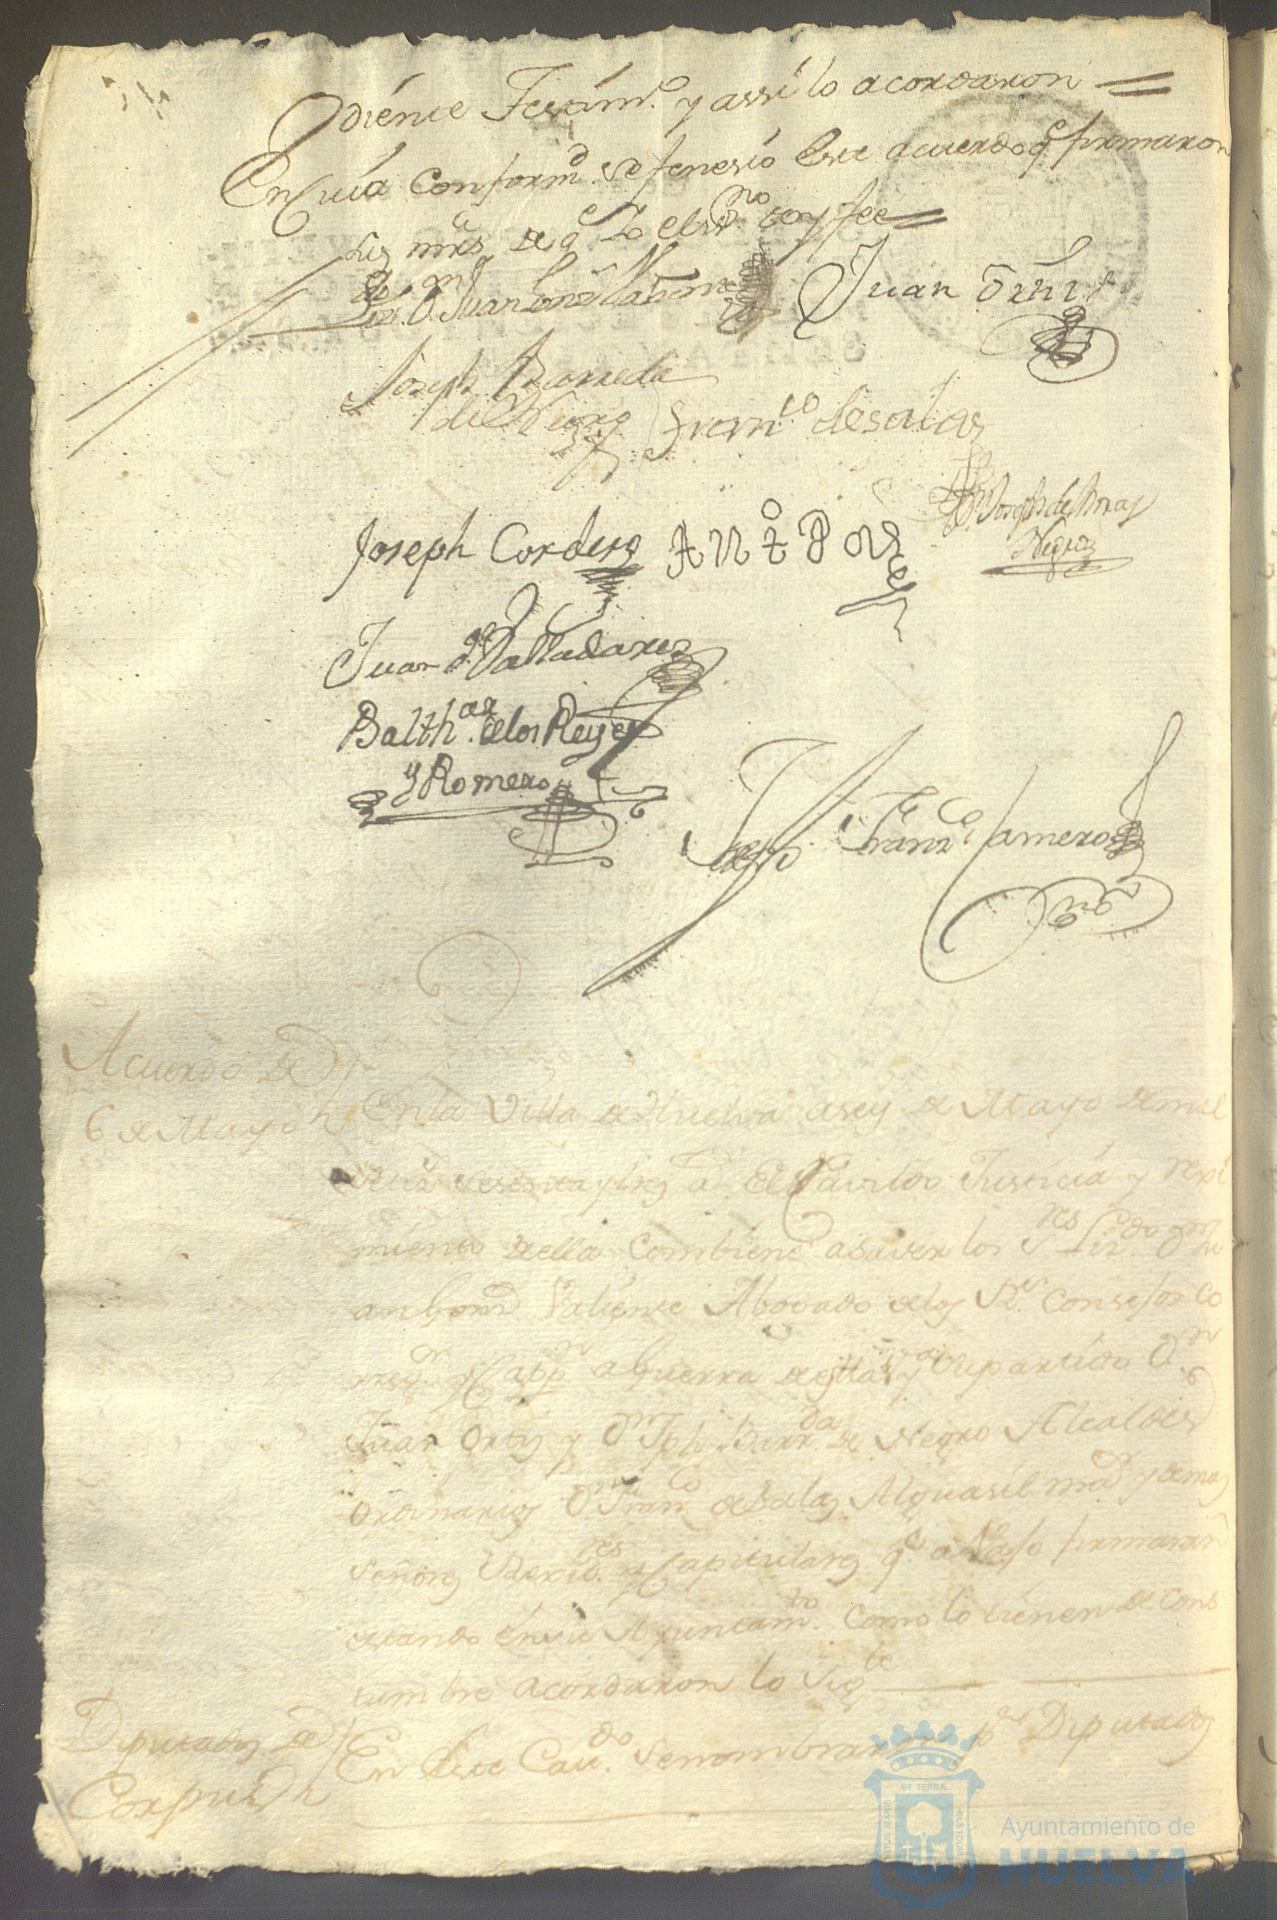 diente Testim.º y assi lo acordaron =
En Cuia Conform.d se fenesio Este acuerdo q.e firmaron
sus mrds de q.e Yo el ss.no doy fee =
Juan Ortiz
Joseph Barreda
de Negro
Fran.co de salas
Joseph Cordero
Ant.º Ponze
D.n Joseph de
Negro
Juan de Valladares
Balth.ar de los Reyes
y Romero
Fran.co Camero
ss.no
Acuerdo de
6 de Mayo
En la Villa de Huelva a seys de Mayo de mil
sete.os sesenta y tres a.s El Cavildo Justicia y rexi
miento de ella Combiene a saver los S.res Liz.do D.n Ju
an Valiente Abogado de los R.s Consejos Co
rreg.or y Cap.n a Guerra de esta V.a y su partido D.n
Juan Ortiz y D.n Jph Barr.da de Negro Alcaldes
Ordinarios D.n Fran.co de Salas Alguasil m.or y demas
señores Capitulares q.e avajo firmaran
estando en su Ayuntam.to como lo tienen de Cos
tumbre acordaron lo sig.te
Diputados de
Corpus
En Este Cav.do se nombraron p.r Diputados
ET TERRÆ
PORTUS MARIS
CUSTODIA
Ayuntamiento de
HUELVA